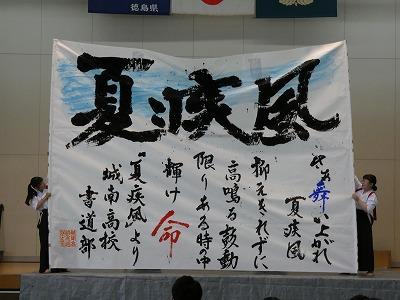 徳島県
夏疾風
さあ舞い上がれ
夏疾風
抑えきれずに
高鳴る鼓動
限りある時の中
輝け 命
“夏疾風”より
城南高校
書道部